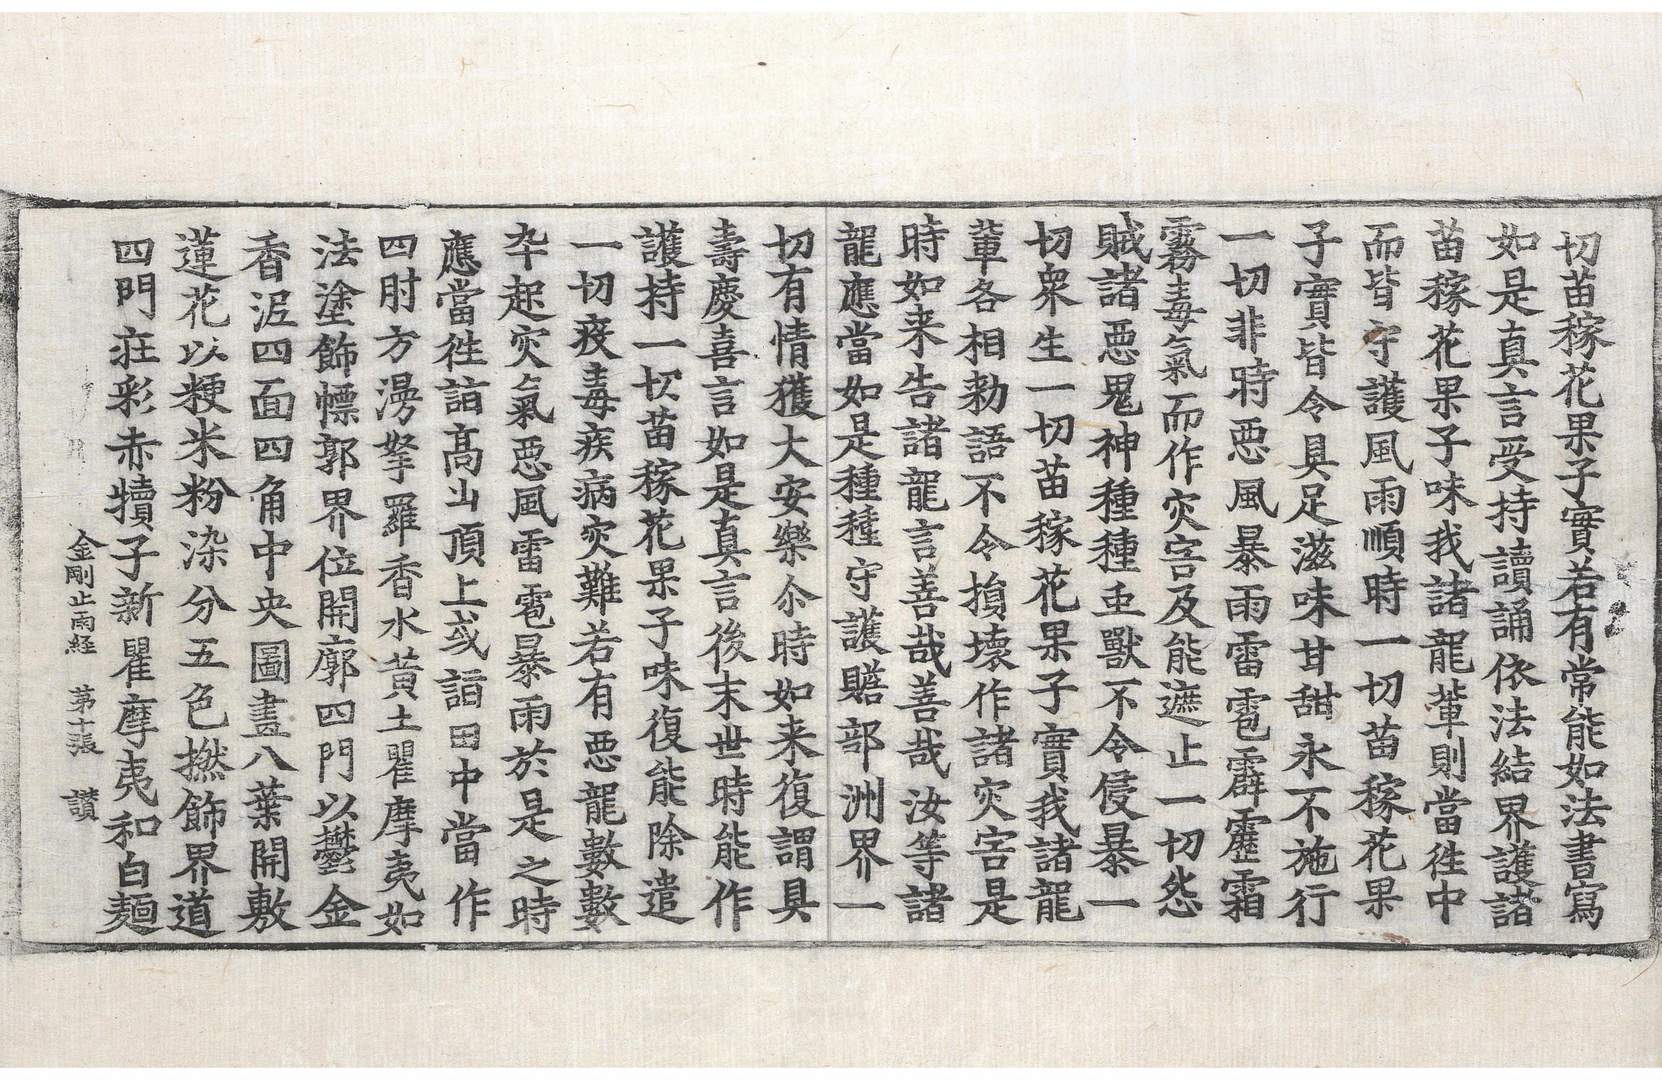 切苗稼花果子實若有常能如法書寫
如是真言受持讀誦依法結界護諸
苗稼花果子味我諸龍軰則當徃中
而皆守護風雨順時一切苗稼花果
子實皆令具足滋味甘甜永不施行
一切非時惡風暴雨雷雹霹靂霜
霧毒氣而作灾害及能遮止一切怨
賊諸惡鬼神種種䖝獸不令侵暴一
切衆生一切苗稼花果子實我諸龍
軰各相勑語不令損壞作諸灾害是
時如来告諸龍言善哉善哉汝等諸
龍應當如是種種守護贍部洲界一
切有情獲大安樂尒時如来復謂具
壽慶喜言如是真言後末世時能作
護持一切苗稼花果子味復能除遣
一切疫毒疾病灾難若有惡龍數數
卒起灾氣惡風雷雹暴雨於是之時
應當徃詣高山頂上或詣田中當作
四肘方漫拏羅香水黃土瞿摩夷如
法塗飾幖郭界位開廓四門以欝金
香泥四面四角中央圖畫八葉開敷
蓮花以粳米粉染分五色撚飾界道
四門莊彩赤犢子新瞿摩夷和白麵
金剛止雨経　第十張　讃